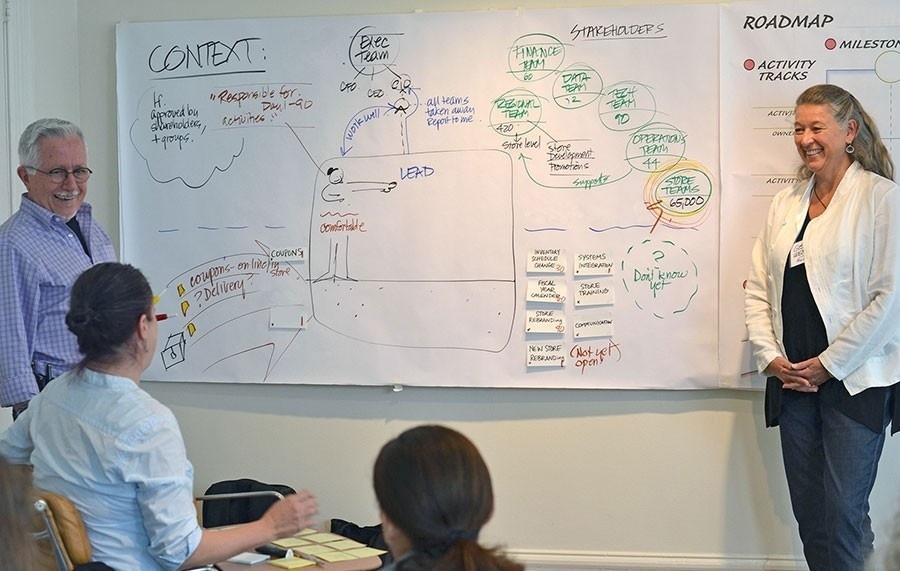 CONTEXT:
If
approved by
shareholders,
+ groups.
"Responsible for
Day 1-90
activities"
Exec
Team
CFO
CEO
CIO
work well
all teams
taken away
Report to me.
LEAD
comfortable
STAKEHOLDERS
FINANCE
TEAM
60
DATA
TEAM
12
TECH
TEAM
90
REGIONAL
TEAM
420
OPERATIONS
TEAM
44
Store level
Store
Development
Promotions
supports
STORE
TEAMS
65,000
coupons-online
? Delivery?
COUPONS
in
store
INVENTORY
SCHEDULE
CHANGE
SYSTEMS
INTEGRATION
FISCAL
YEAR
CALENDAR
STORE
TRAINING
STORE
REBRANDING
COMMUNICATION
NEW STORE
REBRANDING
(Not yet
open)
?
Don't know
yet
ROADMAP
MILESTON
ACTIVITY
TRACKS
ACTIVITY
OWNE
ACTIVITY